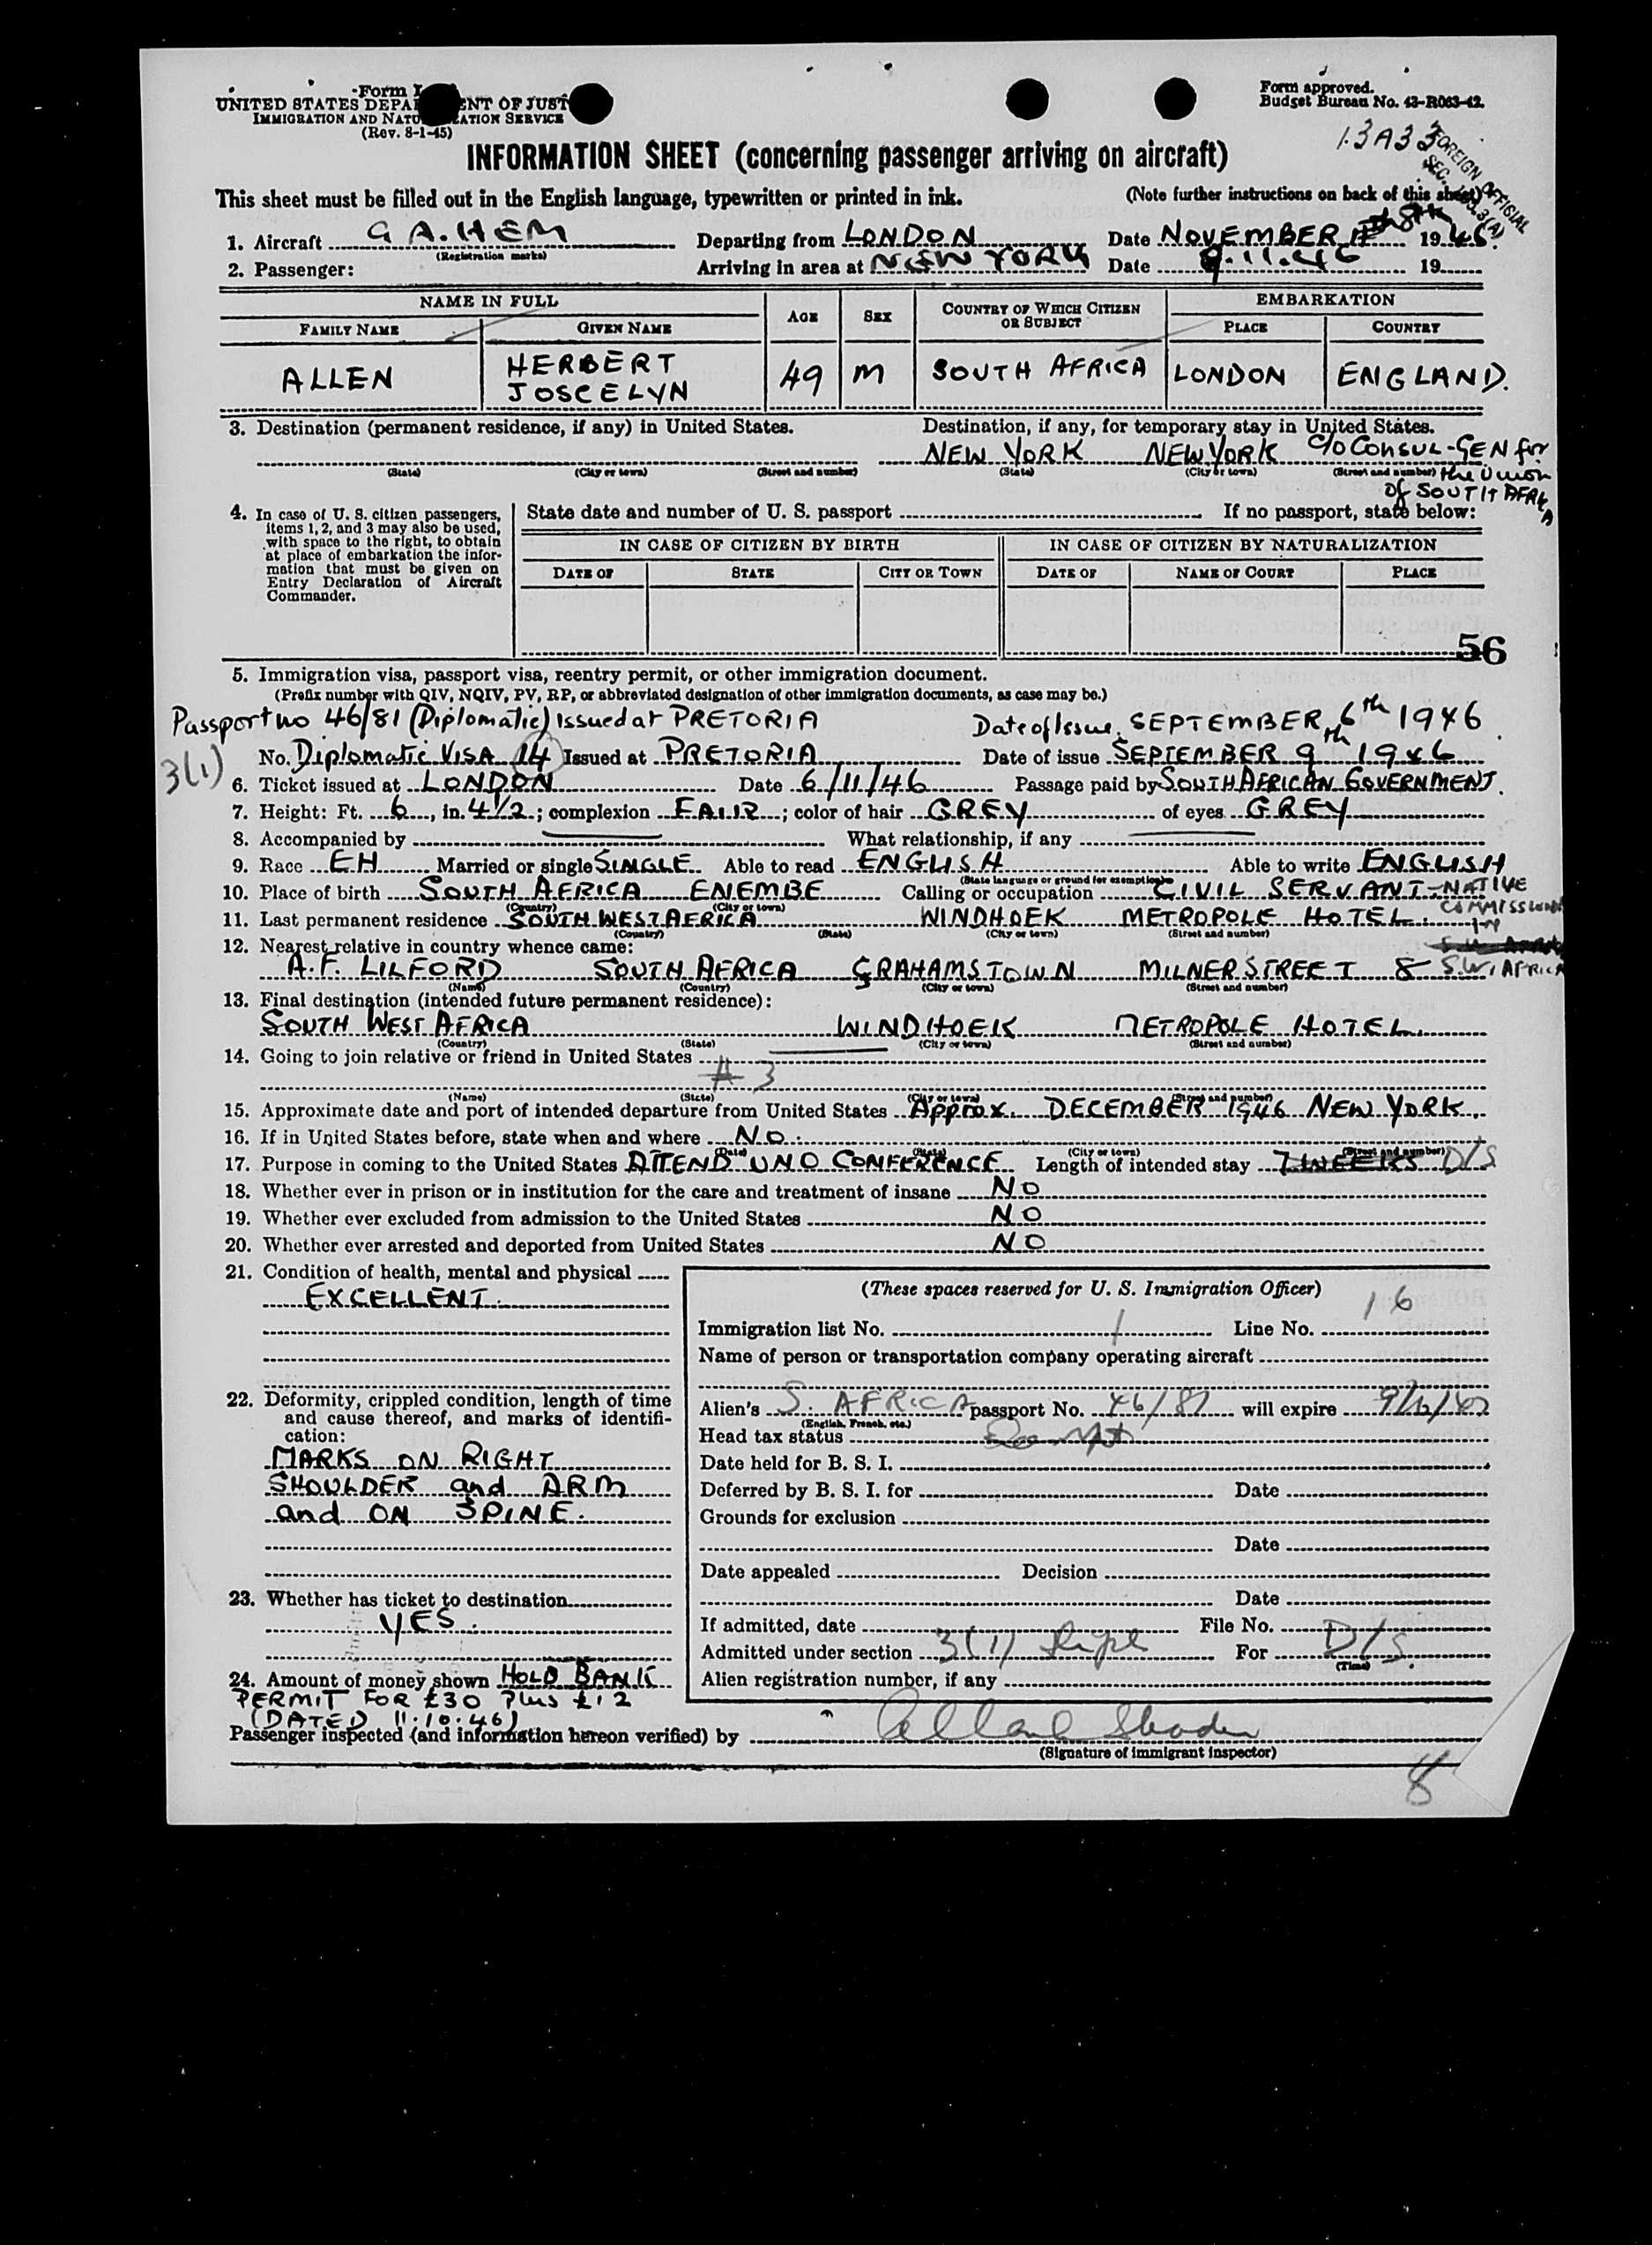 Form I
UNITED STATES DEPA ENT OF JUST
IMMIGRATION AND NATU ATION SERVICE
(Rev. 8-1-45)
Form approved.
Budget Bureau No. 43-R063-42.
13A33
FOREIGN OFFICIAL
SEC. 3(A)
INFORMATION SHEET (concerning passenger arriving on aircraft)
This sheet must be filled out in the English language, typewritten or printed in ink. (Note further instructions on back of this sheet)
1. Aircraft G A.HEM Departing from LONDON Date NOVEMBER 8th 1946.
(Registration marks)
2. Passenger: Arriving in area at NEW YORK Date 9.11.46 19
NAME IN FULL AGE SEX COUNTRY OF WHICH CITIZEN OR SUBJECT EMBARKATION
FAMILY NAME GIVEN NAME PLACE COUNTRY
ALLEN HERBERT JOSCELYN 49 M SOUTH AFRICA LONDON ENGLAND.
3. Destination (permanent residence, if any) in United States. Destination, if any, for temporary stay in United States.
NEW YORK NEW YORK C/O CONSUL-GEN for
(State) (City or town) (Street and number) (State) (City or town) (Street and number) the Union
of SOUTH AFRICA
4. In case of U. S. citizen passengers, items 1, 2, and 3 may also be used, with space to the right, to obtain at place of embarkation the information that must be given on Entry Declaration of Aircraft Commander.
State date and number of U. S. passport If no passport, state below:
IN CASE OF CITIZEN BY BIRTH IN CASE OF CITIZEN BY NATURALIZATION
DATE OF STATE CITY OR TOWN DATE OF NAME OF COURT PLACE
56
5. Immigration visa, passport visa, reentry permit, or other immigration document.
(Prefix number with QIV, NQIV, PV, RP, or abbreviated designation of other immigration documents, as case may be.)
Passport no 46/81 (Diplomatic) Issued at PRETORIA Date of Issue. SEPTEMBER 6th 1946.
3(1)
No. Diplomatic VISA 14 Issued at PRETORIA Date of issue SEPTEMBER 9th 1946
6. Ticket issued at LONDON Date 6/11/46 Passage paid by SOUTH AFRICAN GOVERNMENT.
7. Height: Ft. 6, in. 4½; complexion FAIR; color of hair GREY of eyes GREY
8. Accompanied by What relationship, if any
9. Race EH Married or single SINGLE Able to read ENGLISH Able to write ENGLISH
(State language or ground for exemption)
10. Place of birth SOUTH AFRICA ENEMBE Calling or occupation CIVIL SERVANT-NATIVE
(Country) (City or town) COMMISSIONER
11. Last permanent residence SOUTH WEST AFRICA WINDHOEK METROPOLE HOTEL.
(Country) (State) (City or town) (Street and number)
12. Nearest relative in country whence came:
A.F. LILFORD SOUTH AFRICA GRAHAMSTOWN MILNER STREET 8 S.W. AFRICA
(Name) (Country) (City or town) (Street and number)
13. Final destination (intended future permanent residence):
SOUTH WEST AFRICA WINDHOEK METROPOLE HOTEL.
(Country) (State) (City or town) (Street and number)
14. Going to join relative or friend in United States
A 3
(Name) (State) (City or town) (Street and number)
15. Approximate date and port of intended departure from United States Approx. DECEMBER 1946 NEW YORK.
16. If in United States before, state when and where NO.
(Date) (State) (City or town) (Street and number)
17. Purpose in coming to the United States ATTEND UNO CONFERENCE Length of intended stay 7 WEEKS D/S
18. Whether ever in prison or in institution for the care and treatment of insane NO
19. Whether ever excluded from admission to the United States NO
20. Whether ever arrested and deported from United States NO
21. Condition of health, mental and physical
EXCELLENT.
22. Deformity, crippled condition, length of time and cause thereof, and marks of identification:
MARKS ON RIGHT
SHOULDER and ARM
and ON SPINE.
23. Whether has ticket to destination
YES.
24. Amount of money shown HOLD BANK
PERMIT FOR £30 Plus £12
(DATED 11.10.46)
(These spaces reserved for U. S. Immigration Officer)
Immigration list No. 1 Line No. 16
Name of person or transportation company operating aircraft
Alien's S. AFRICA passport No. 46/81 will expire
(English, French, etc.)
Head tax status
Date held for B. S. I.
Deferred by B. S. I. for Date
Grounds for exclusion
Date
Date appealed Decision
Date
If admitted, date File No.
Admitted under section 3(1) For D/S.
(Time)
Alien registration number, if any
Passenger inspected (and information hereon verified) by
(Signature of immigrant inspector)
8